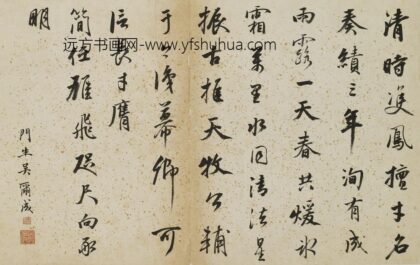 远方书画网-www.yfshuhua.com
清時雙鳳擅才名
奏績三年洵有成
雨露一天春共煖氷
霜萬里水同清法星
振古推天牧公輔
于幕卿可
信長才膺
簡任雄飛咫尺向承
明
門生吳爾成